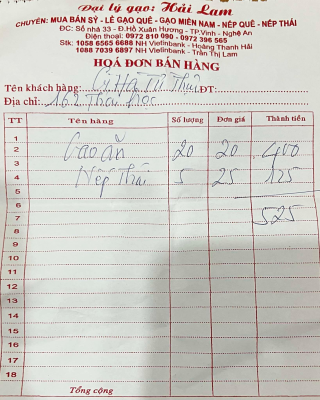 Đại lý gạo: Hải Lam
CHUYÊN: MUA BÁN SỶ - LẺ GẠO QUÊ - GẠO MIỀN NAM - NẾP QUÊ - NẾP THÁI
ĐC: Số nhà 33 - Đ.Hồ Xuân Hương - TP.Vinh - Nghệ An
Điện thoại: 0972 810 090 - 0972 396 565
Stk: 1058 6565 6688 NH Vietinbank - Hoàng Thanh Hải
1088 7039 6897 NH Vietinbank - Trần Thị Lam
HOÁ ĐƠN BÁN HÀNG
Tên khách hàng: ĐT:
Địa chỉ: 162
TT Tên hàng Số lượng Đơn giá Thành tiền
1
2 Gạo ăn 20 20 400
3
4 Nếp Thái 5 25 125
5
6 525
7
8
9
10
11
12
13
14
15
16
17
18
Tổng cộng